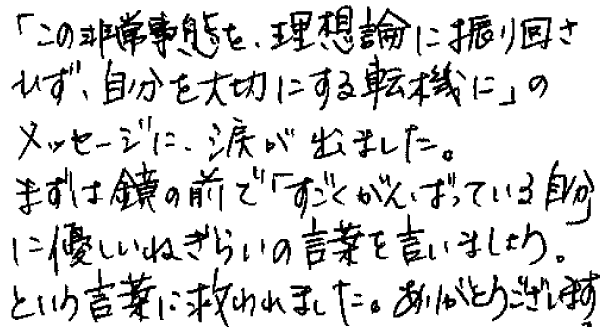 「この非常事態を、理想論に振り回さ
れず、自分を大切にする転機に」の
メッセージに、涙が出ました。
まずは鏡の前で「すごくがんばっている自分
に優しいねぎらいの言葉を言いましょう。
という言葉に救われました。ありがとうございます